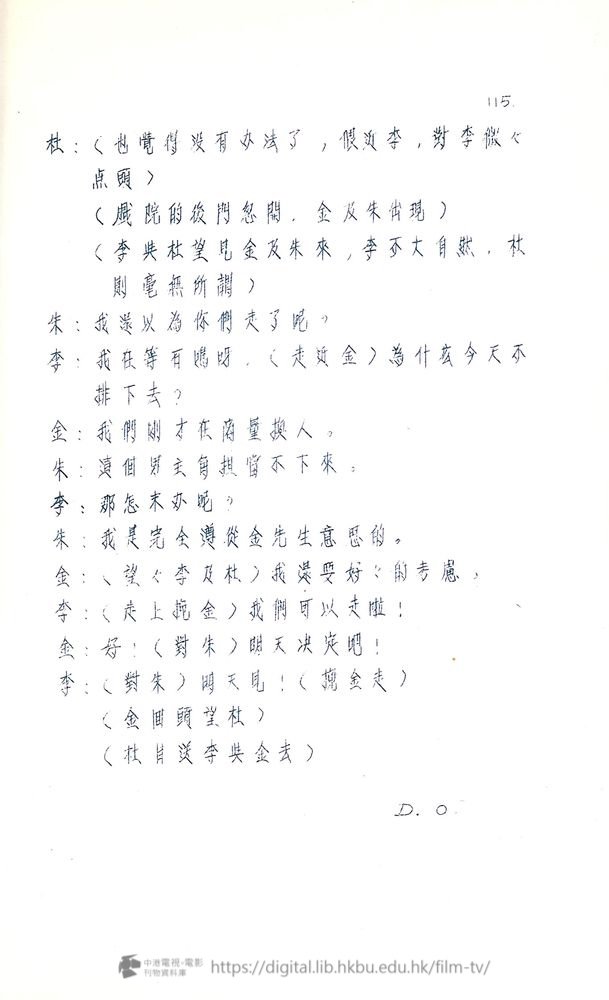 115.
杜：（也覺得没有办法了，偎近李，對李微々
点頭）
（戲院的後門忽開，金及朱出現）
（李與杜望見金及朱來，李不大自然，杜
則毫無所謂）
朱：我還以為你們走了呢？
李：我在等有鳴呀，（走近金）為什広今天不
排下去？
金：我們刚才在商量换人。
朱：這個男主角担當不下來。
李：那怎末办呢？
朱：我是完全遵從金先生意思的。
金：（望々李及杜）我還要好々的考慮。
李：（走上挽金）我們可以走啦！
金：好！（對朱）明天决定吧！
李：（對朱）明天見！（挽金走）
（金回頭望杜）
（杜目送李與金去）
D. O.
中港電視·電影
刊物資料庫
https://digital.lib.hkbu.edu.hk/film-tv/